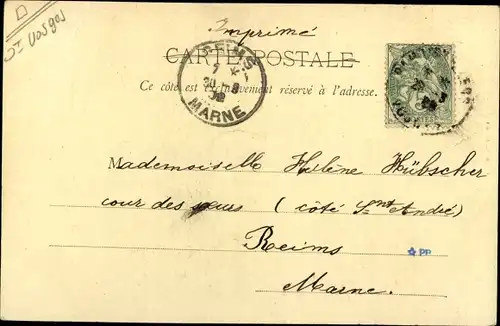 Vosges
Imprimé
CARTE POSTALE
REIMS
MARNE
Ce côté est exclusivement réservé à l'adresse.
Mademoiselle Hélène Hübscher
cour des (côté St André)
Reims
PP
Marne.